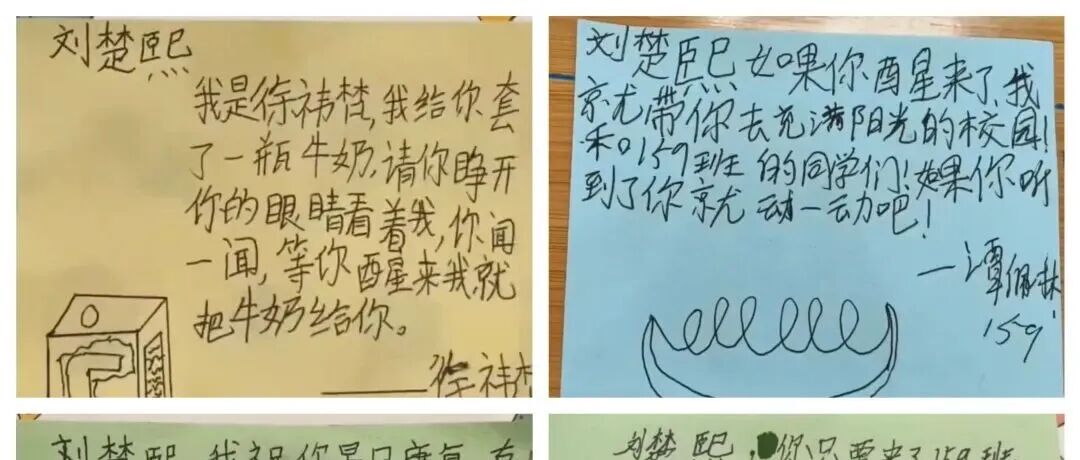 刘楚熙
我是徐祎梵,我给你套
了一瓶牛奶,请你睁开
你的眼睛看着我,你闻
一闻,等你醒来我就
把牛奶给你。
——徐祎梵
刘楚熙如果你酉星来了,我
就带你去充满阳光的校园!
和0159班的同学们!如果你听
到了你就动一动吧!
—谭佩林
159
刘楚熙,我祝你早日康复,
刘楚熙,你只要来了159班